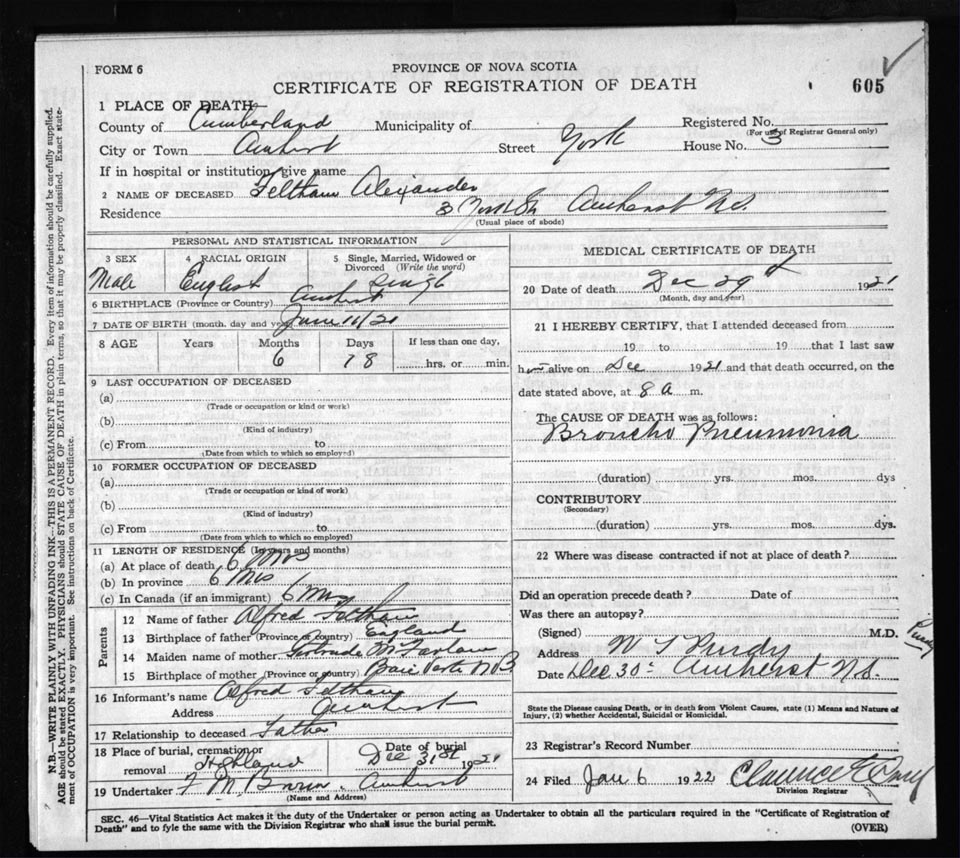 FORM 6
PROVINCE OF NOVA SCOTIA
CERTIFICATE OF REGISTRATION OF DEATH
605
1 PLACE OF DEATH—
County of Cumberland Municipality of Registered No.
(For use of Registrar General only)
City or Town Amherst Street York House No. 3
If in hospital or institution, give name
2 NAME OF DECEASED Feltham Alexander
Residence 3 York St Amherst N.S.
(Usual place of abode)
PERSONAL AND STATISTICAL INFORMATION
3 SEX 4 RACIAL ORIGIN 5 Single, Married, Widowed or Divorced (Write the word)
Male English Single
6 BIRTHPLACE (Province or Country) Amherst
7 DATE OF BIRTH (month, day and year) June 11/21
8 AGE Years Months Days If less than one day,
6 18 hrs. or min.
9 LAST OCCUPATION OF DECEASED
(a)
(Trade or occupation or kind or work)
(b)
(Kind of industry)
(c) From to
(Date from which to which so employed)
10 FORMER OCCUPATION OF DECEASED
(a)
(Trade or occupation or kind of work)
(b)
(Kind of industry)
(c) From to
(Date from which to which so employed)
11 LENGTH OF RESIDENCE (In years and months)
(a) At place of death 6 Mos
(b) In province 6 Mos
(c) In Canada (if an immigrant) 6 Mos
Parents
12 Name of father Alfred Feltham
13 Birthplace of father (Province or country) England
14 Maiden name of mother Gertrude McFarlane
15 Birthplace of mother (Province or country) Baie Verte N B
16 Informant's name Alfred Feltham
Address Amherst
17 Relationship to deceased Father
18 Place of burial, cremation or removal Highland Date of burial Dec 31st 1921
19 Undertaker F M Brown Amherst
(Name and Address)
MEDICAL CERTIFICATE OF DEATH
20 Date of death Dec 29th 1921
(Month, day and year)
21 I HEREBY CERTIFY, that I attended deceased from
19 to 19 that I last saw
him alive on Dec 1921 and that death occurred, on the
date stated above, at 8 a m.
The CAUSE OF DEATH was as follows:
Broncho Pneumonia
(duration) yrs. mos. dys
CONTRIBUTORY
(Secondary)
(duration) yrs. mos. dys.
22 Where was disease contracted if not at place of death?
Did an operation precede death? Date of
Was there an autopsy?
(Signed) M.D.
Purdy
Address W T Purdy
Date Dec 30th Amherst N.S.
State the Disease causing Death, or in death from Violent Causes, state (1) Means and Nature of
Injury, (2) whether Accidental, Suicidal or Homicidal.
23 Registrar's Record Number
24 Filed Jan 6 1922 Clarence
Division Registrar
SEC. 46—Vital Statistics Act makes it the duty of the Undertaker or person acting as Undertaker to obtain all the particulars required in the "Certificate of Registration of
Death" and to fyle the same with the Division Registrar who shall issue the burial permit.
(OVER)
N.B.—WRITE PLAINLY WITH UNFADING INK—THIS IS A PERMANENT RECORD. Every item of information should be carefully supplied.
AGE should be stated EXACTLY. PHYSICIANS should STATE CAUSE OF DEATH in plain terms, so that it may be properly classified. Exact statement of OCCUPATION is very important. See instructions on back of Certificate.